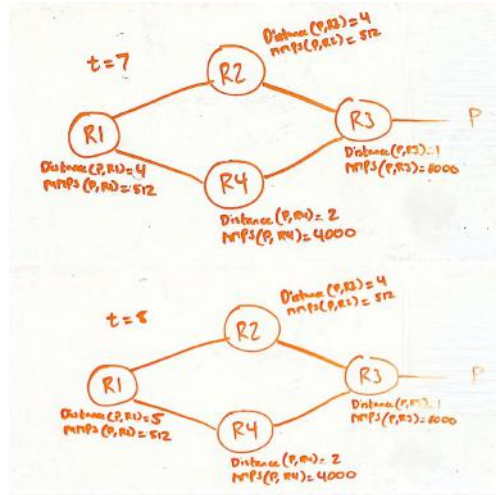 t=7
Distance(P,R2)=4
mmps(P,R2)=512
R2
R1
Distance(P,R1)=4
mmps(P,R1)=512
R3
P
Distance(P,R3)=1
mmps(P,R3)=8000
R4
Distance(P,R4)=2
mmps(P,R4)=4000
t=8
Distance(P,R2)=4
mmps(P,R2)=512
R2
R1
Distance(P,R1)=5
mmps(P,R1)=512
R3
P
Distance(P,R3)=1
mmps(P,R3)=8000
R4
Distance(P,R4)=2
mmps(P,R4)=4000